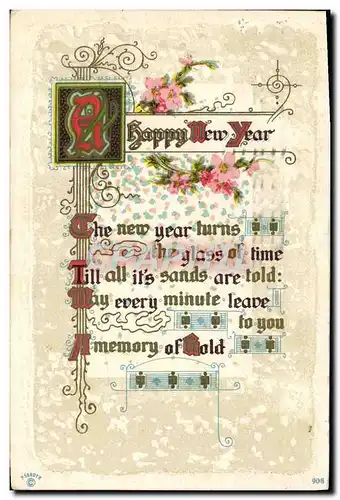 A
Happy New Year
The new year turns
the glass of time
Till all it's sands are told:
May every minute leave
to you
A memory of Gold